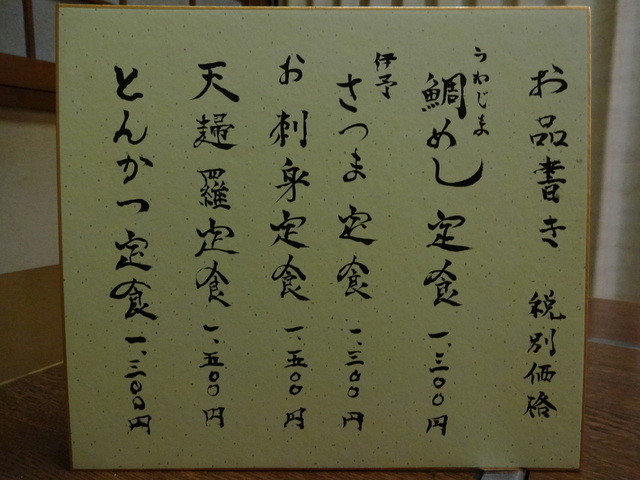 お品書き 税別価格
うわじま
鯛めし定食 一、三〇〇円
伊予
さつま定食 一、三〇〇円
お刺身定食 一、五〇〇円
天麺羅定食 一、五〇〇円
とんかつ定食 一、三〇〇円